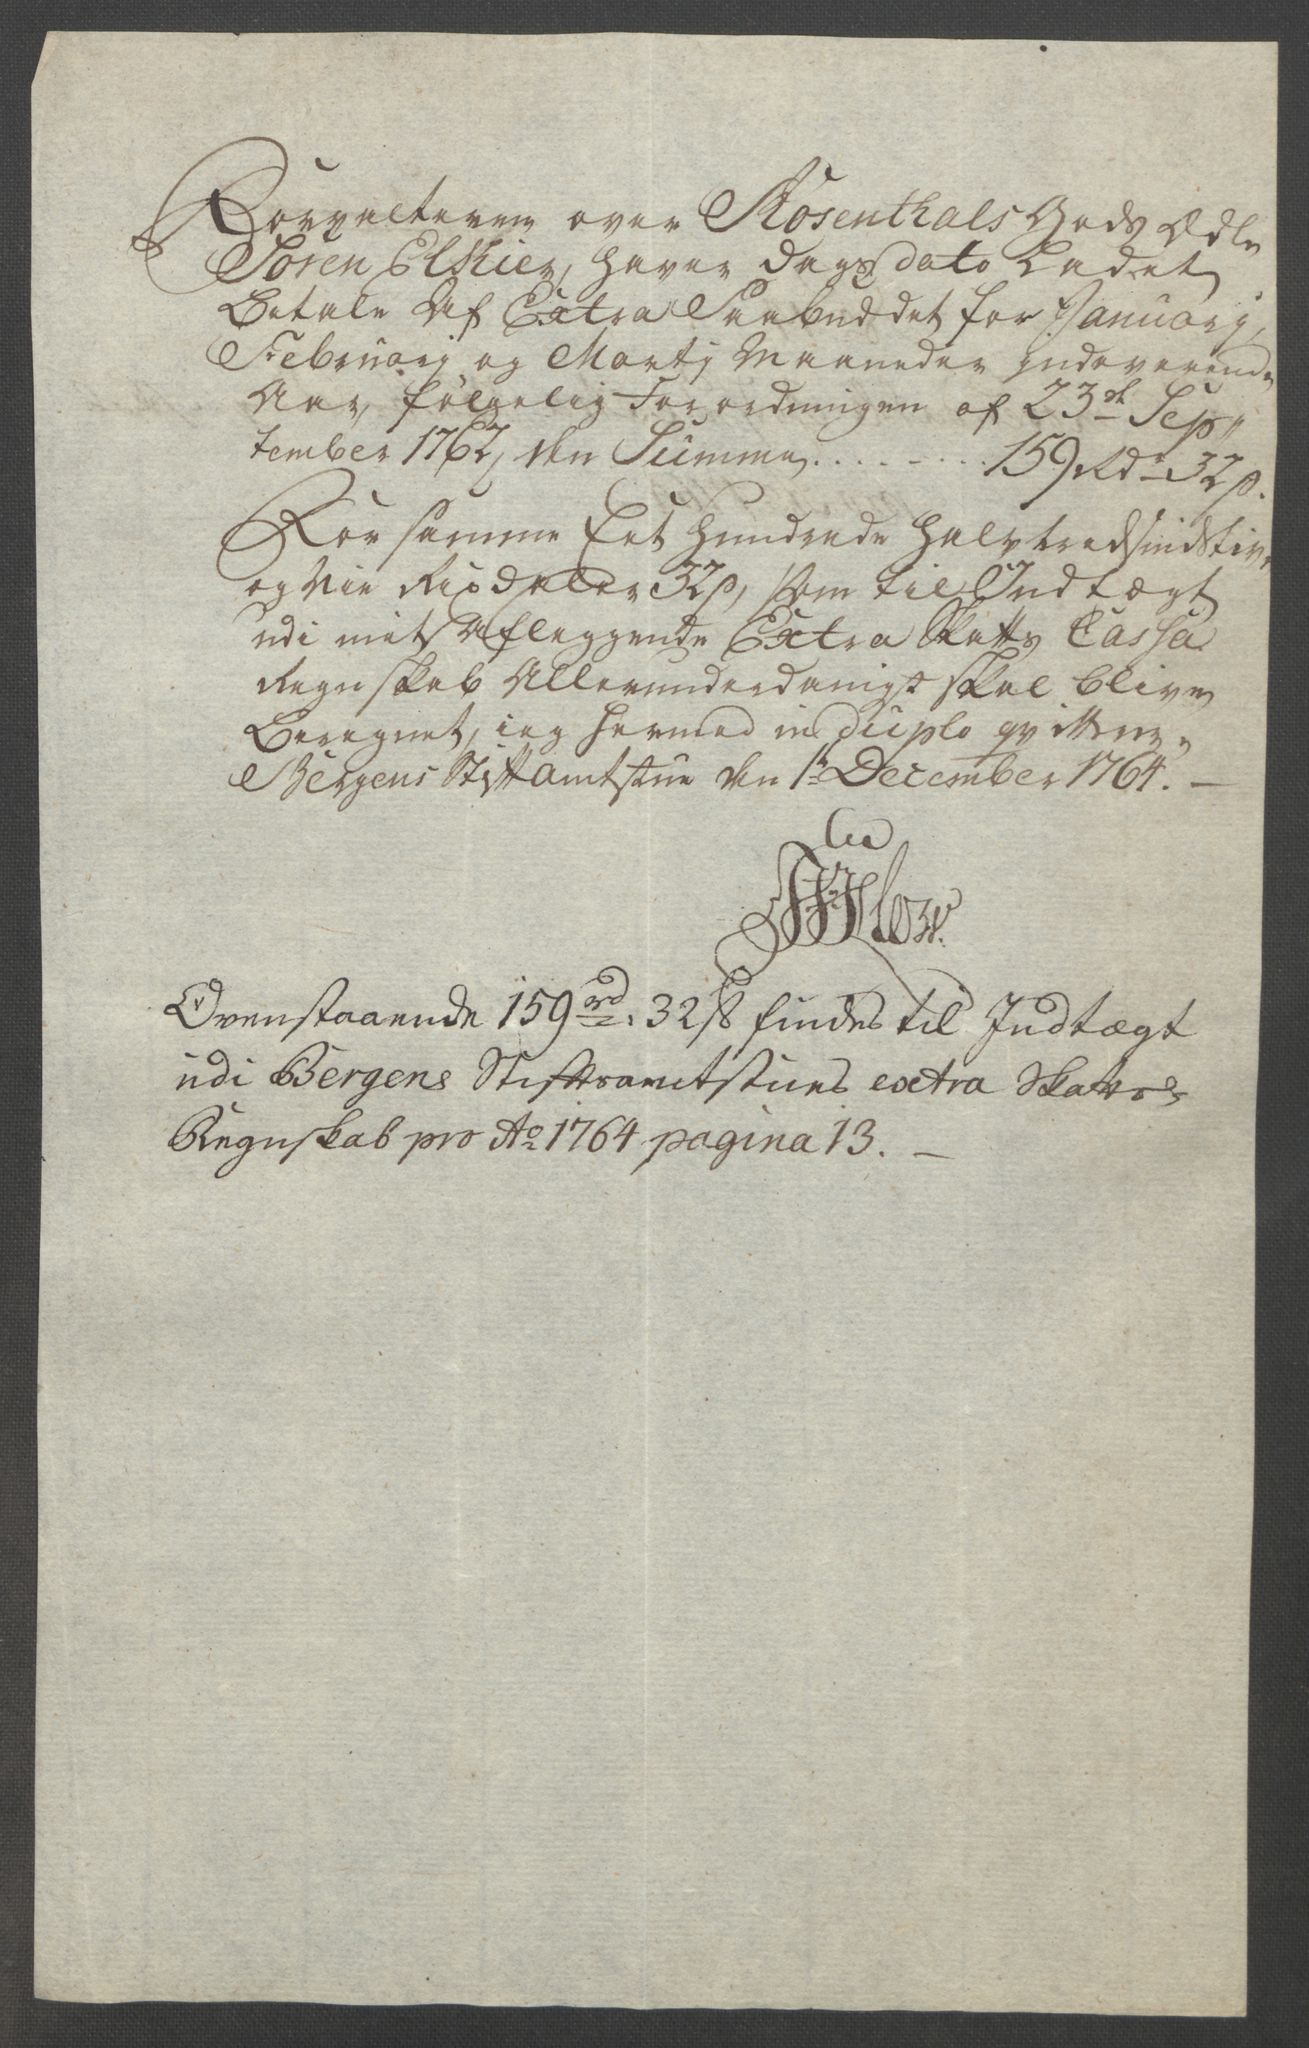 Forvalteren over Rosenthals Gods Ædle
Søren Elkier, haver dags dato Ladet
Betale Af Extra Paabuddet for Januarij,
Februarij og Martij Maaneder indeværende
Aar, følgelig Forordningen af 23de Sep,,
tember 1762, den Summa . . . . . . . 159 Rdr 32 s.
For samme Eet Hundrede Halvtredsindstive
og Nie Rixdaler 32 s, som til Indtægt
udi mit Aflæggende Extra Skatts Cassa
Regnskab Allerunderdanigst skal blive
Beregnet, ieg hermed in duplo qvitterer.
Bergens Stiftamtstue den 1te December 1764. —
Ovenstaaende 159 rd. 32 s findes til Indtægt
udi Bergens Stiftsamtstues extra Skattes
Regnskab pro Ao 1764 pagina 13. —